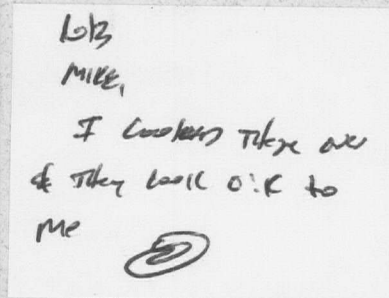 MIKE,
I looked these over
& they look O.K to
me